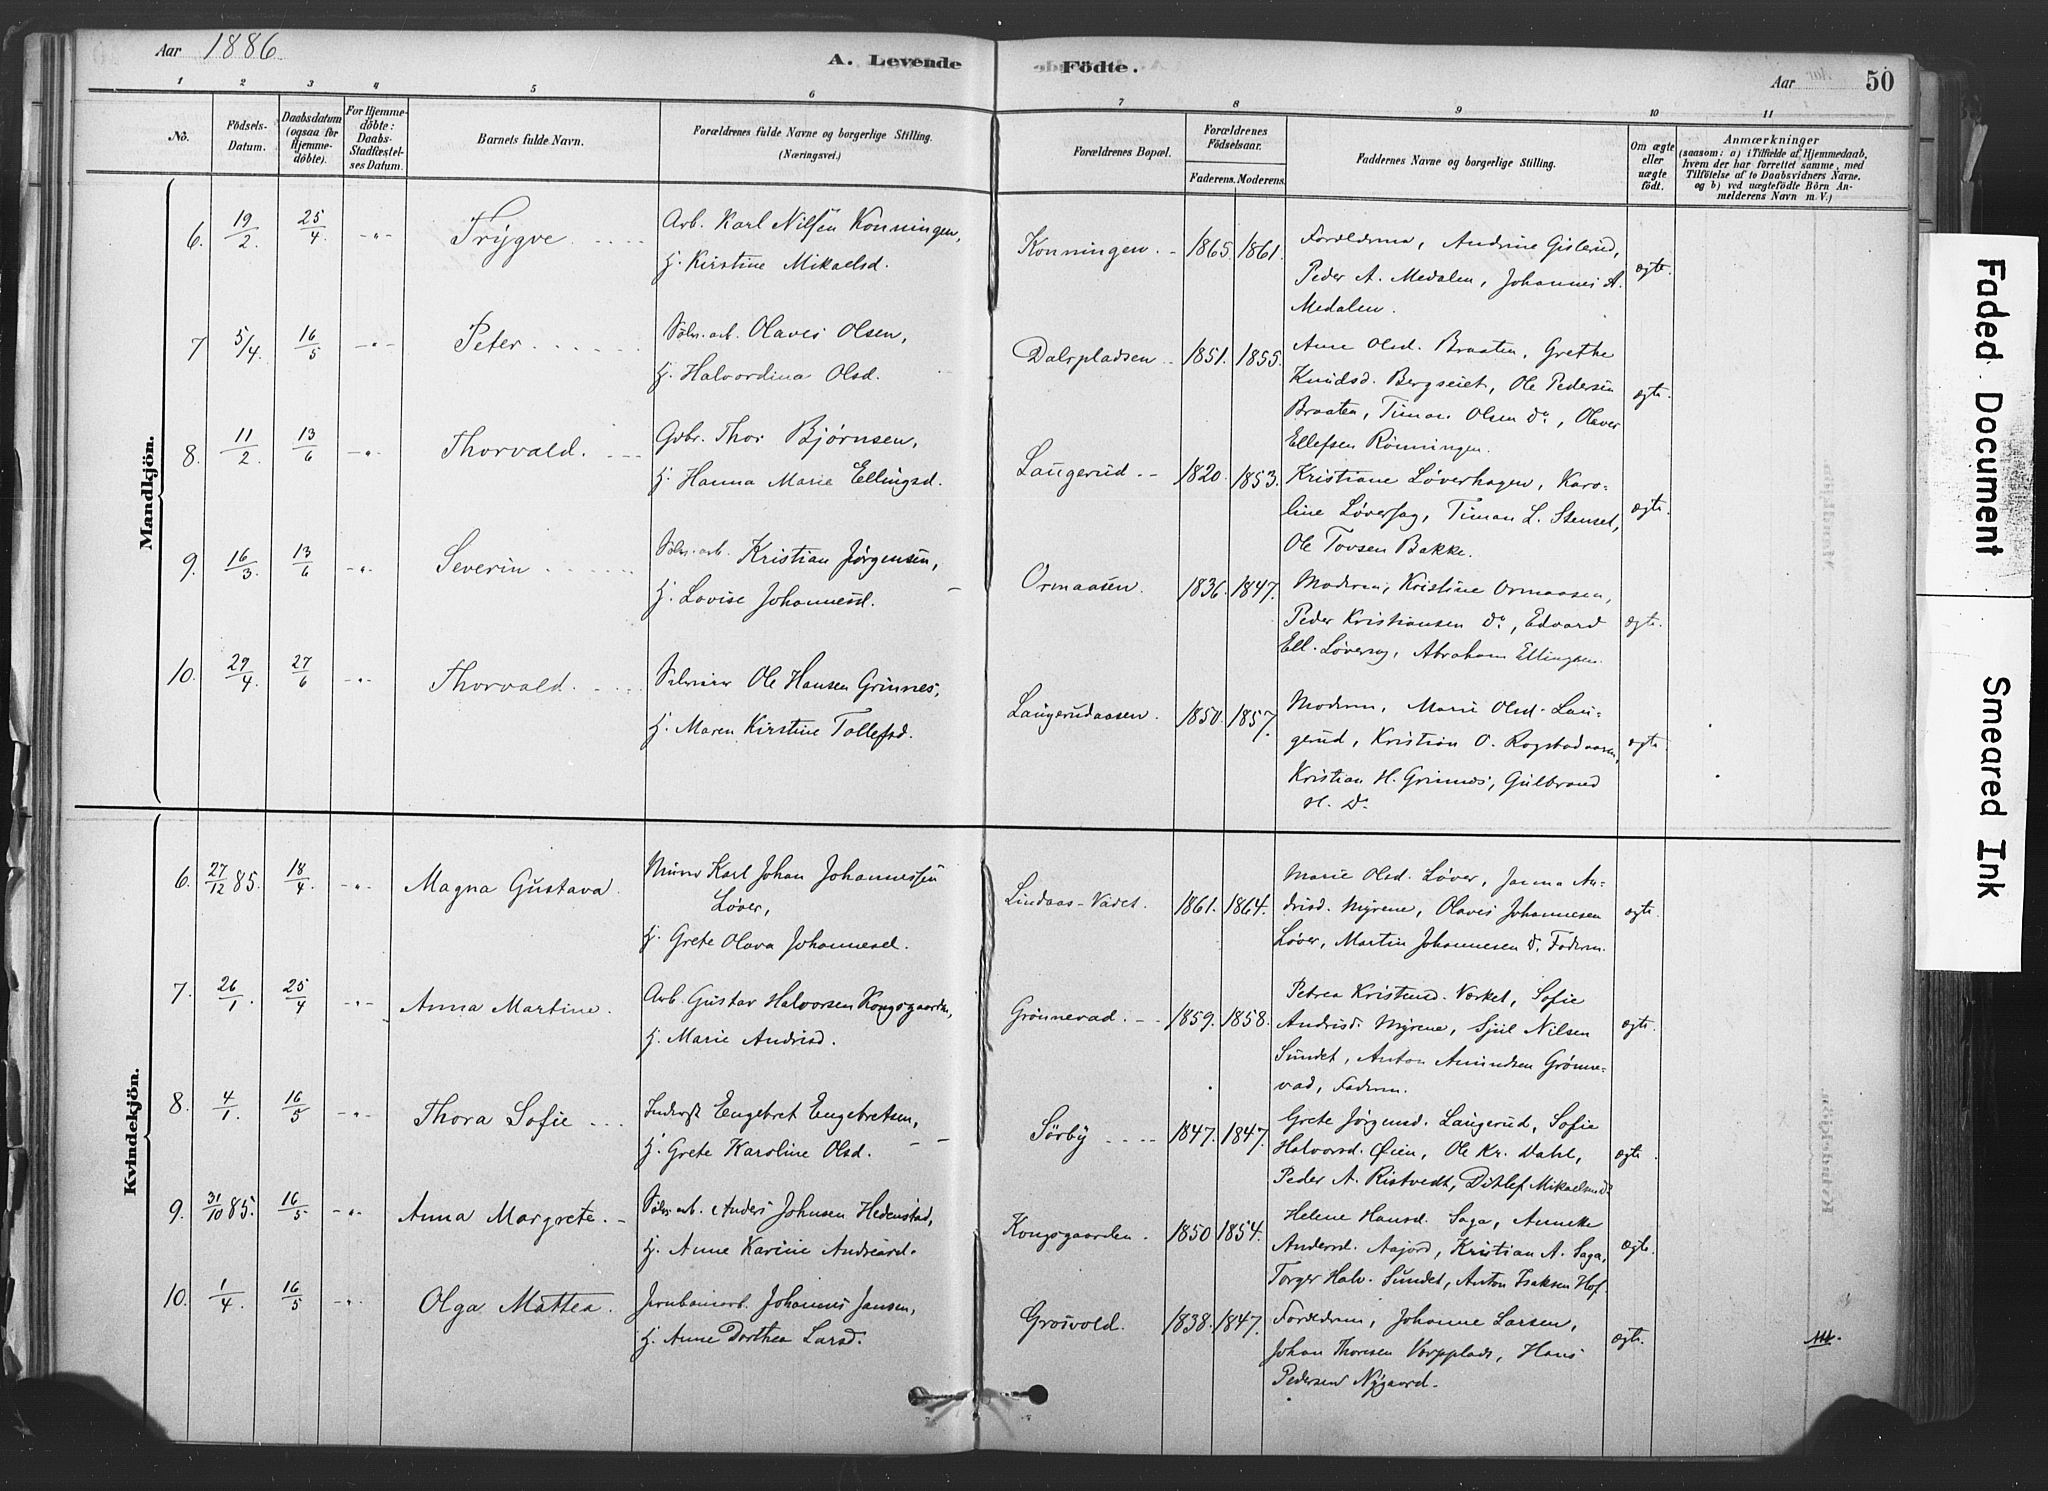 Aar 1886
A. Levende Födte.
Aar 50
1 2 3 4 5 6 7 8 9 10 11
No.
Födsels-Datum.
Daabsdatum (ogsaa for Hjemmedöbte).
For Hjemmedöbte: Daabs-Stadfæstelses Datum.
Barnets fulde Navn.
Forældrenes fulde Navne og borgerlige Stilling.
(Næringsvei.)
Forældrenes Bopæl.
Forældrenes Födselsaar.
Faderens. Moderens.
Faddernes Navne og borgerlige Stilling.
Om ægte eller uægte födt.
Anmærkninger
(saasom: a) i Tilfælde af Hjemmedaab,
hvem der har forrettet samme, med
Tilföielse af to Daabsvidners Navne.
og b) ved uægtefödte Börn An-
melderens Navn m. V.)
Mandkjön.
6. 19/2 25/4 -"- Trygve Arb. Karl Nilsen Konningen,
H. Kirstine Mikaelsd.
Konningen. 1865. 1861.
Forældrene, Andrine Gislerud,
Peder A. Medalen, Johannes A.
Medalen.
ægte.
7 5/4. 16/5 -"- Peter Sölv. arb. Olaves Olsen,
H. Halvordina Olsd.
Dalspladsen 1851. 1855.
Anne Olsd. Braaten, Grethe
Knudsd. Bergseiet, Ole Pedersen
Braaten, Timan Olsen Do, Olaves
Ellefsen Rönningen.
ægte.
8. 11/2 13/6 -"- Thorvald. Gdbr. Thor Bjørnsen,
H. Hanna Marie Ellingsd.
Laugerud 1820. 1853.
Kristiane Løverhagen, Karo-
line Løverhag, Timan L. Stenset,
Ole Tovsen Bakke.
ægte.
9. 16/3. 13/6 -"- Severin Sölv. arb. Kristian Jørgensen,
H. Lovise Johannesd.
Ormaasen. 1836. 1847.
Moderen, Kristine Ormaasen,
Peder Kristiansen Do, Edvard
Ell. Løverag, Abraham Ellingsen.
ægte.
10. 29/4. 27/6 -"- Thorvald. Ole Hansen Grinnes,
H. Maren Kirstine Tollefsd.
Laugerudaasen. 1850. 1857.
Moderen, Marie Olsd. Lau-
gerud, Kristian O. Rogstadaasen,
Kristian H. Grinnes, Gulbrand
H. Do
ægte.
Kvindekjön.
6. 27/12 85. 18/4. -"- Magna Gustava. Karl Johan Johannessen
Løver,
H. Grete Olava Johannesd.
Lindaas-Vadet. 1861. 1864.
Marie Olsd. Løver, Janna An-
drisd. Myrene, Olaves Johannesen
Løver, Martin Johannesen Do. Faderen.
ægte.
7. 26/1. 25/4 -"- Anna Martine. Arb. Gustav Halvorsen Kongsgaarden,
H. Marie Andrisd.
Grönnevad. 1859. 1858.
Petrea Kristensd. Værket, Sofie
Andrisd. Myrene, Sjul Nilsen
Sundet, Anton Amundsen Grønne-
vad, Faderen.
ægte.
8. 4/1. 16/5 -"- Thora Sofie Inderst Engebret Engebretsen,
H. Grete Karoline Olsd.
Sörby 1847. 1847.
Grete Jørgensd. Laugerud, Sofie
Halvorsd. Øien, Ole Kr. Dahl,
Peder A. Ristvedt, Ditlef Mikaelsen Do
ægte.
9. 31/10 85. 16/5 -"- Anna Margrete. Sölv. arb. Anders Johnsen Hedenstad,
H. Anne Karine Andreasd.
Kongsgaarden. 1850 1854.
Helene Hansd. Saga, Anneke
Andersd. Aasjord, Kristian A. Saga,
Torger Halv. Sundet, Anton Isaksen Hof.
ægte.
10. 1/4 16/5 -"- Olga Mathea. Jernbanearb. Johannes Jansen,
H. Anne Dorthea Larsd.
Grosvold. 1838. 1847.
Forældrene, Johanne Larsen,
Johan Thoresen Vorpplads, Hans
Pedersen Nygaard.
ægte.
Faded Document
Smeared Ink